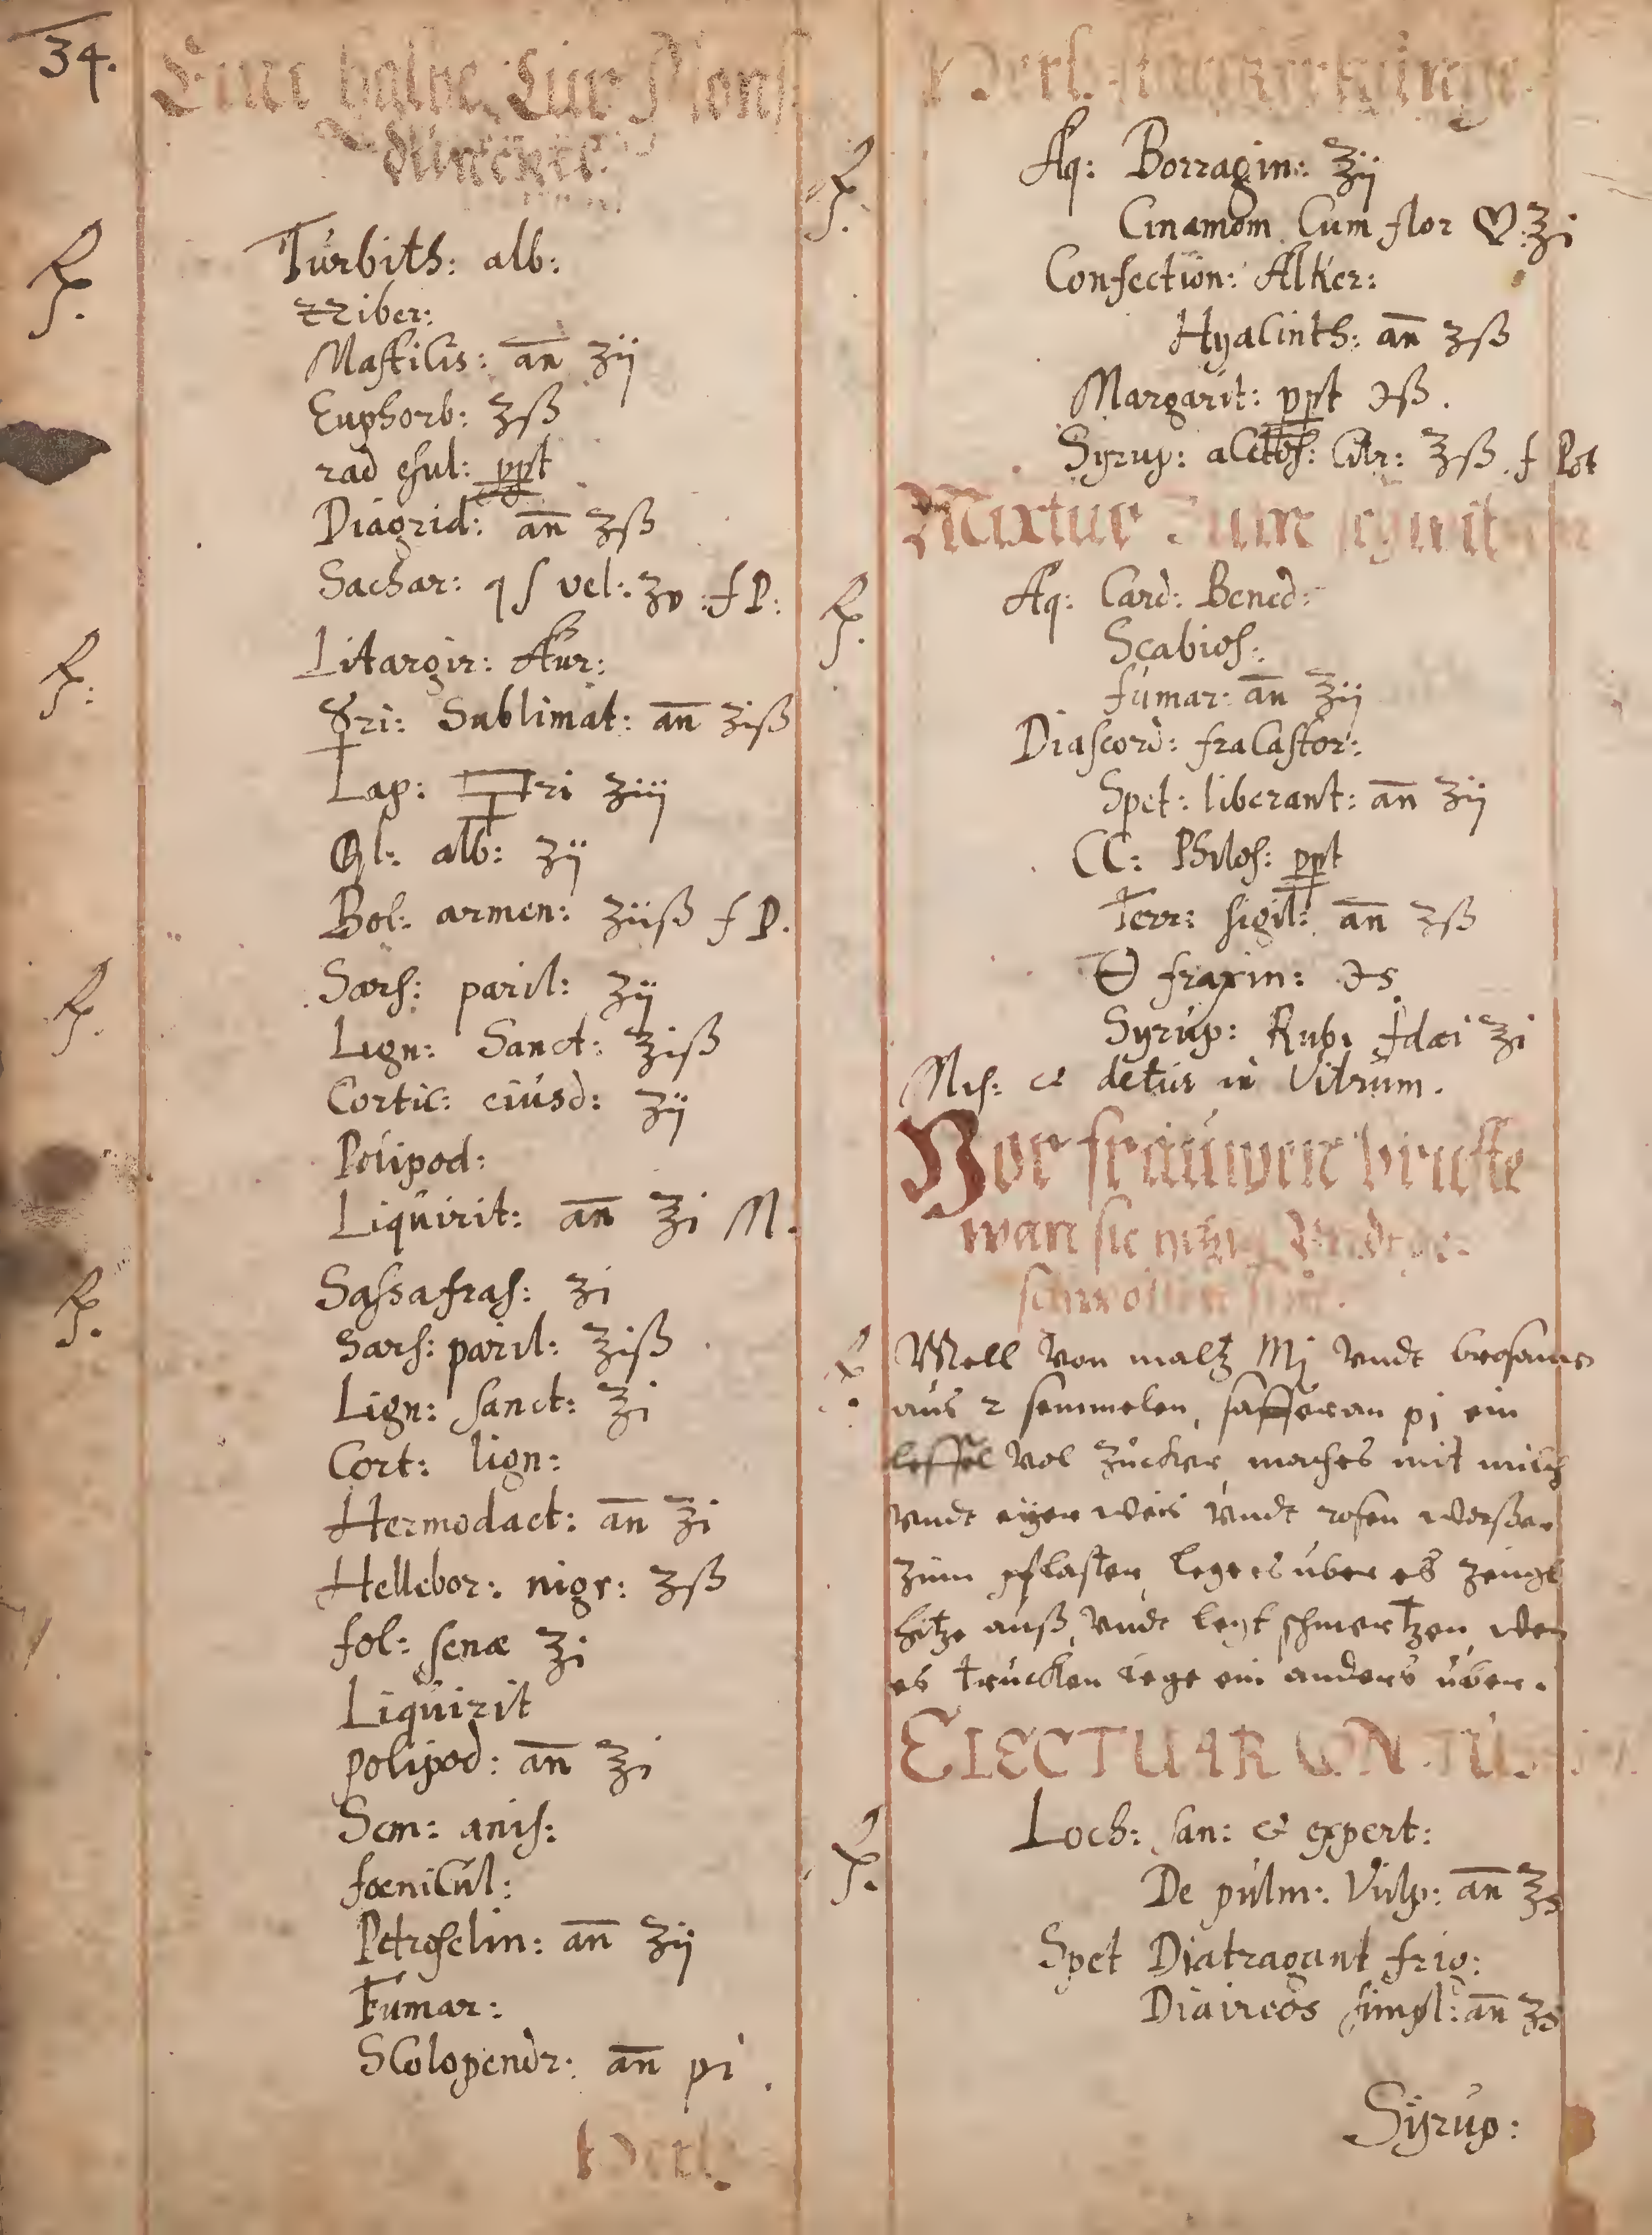 34.
Eine halbe Cur Mons
Rp. Turbith: alb:
zziber:
Masticis: añ ʒij
Euphorb: ʒß
rad esul: ppt
Diagrid: añ ʒß
Sachar: q s vel: ʒv. f P:
Rp: Litargir: Aur:
☿ri: Sublimat: añ ʒiß
Lap: ri ʒiij
alb: ʒij
Bol: armen: ʒiiß f P.
Rp. Sars: paril: ℥ij
Lign: Sanct: ℥iß
Cortic: eiusd: ʒij
Polipod:
Liquirit: añ ℥i M.
Rp. Sassafras: ʒi
Sars: paril: ℥iß
Lign: sanct: ℥i
Cort: lign:
Hermodact: añ ℥i
Hellebor: nigr: ʒß
fol: senæ ℥i
Liquirit
polipod: añ ℥i
Sem: anis:
fœnicul:
Petroselin: añ ʒij
Fumar:
Scolopendr: añ pi.
Perl.
Perl.
Rp. Aq: Borragin: ℥ij
Cinamom Cum flor ℥i
Confection: Alker:
Hyacinth: añ ʒß
Margarit: ppt ℈ß.
Syrup: acetos: Citr: ℥ß. f Pot
Mixtur Zum
Rp. Aq: Card: Bened:
Scabios:
fumar: añ ℥ij
Diascord: fracastor:
Spet: liberant: añ ʒij
CC: Philos: ppt
Terr: sigil: añ ʒß
fraxin: ℈s.
Syrup: Rub: Idæi ℥i
Mis: et detur in Vitrum.
Vor frauwen brüste
wan sie hitzig Undt ge-
schwollen sin.
Rp. Mell von maltz Mj Vndt brosams
aus 2 semmelen, safferan pj ein
leffel vol zucker, maches mit milch
vndt eyer weis vndt rosen waßer
zum pflaster, leg es uber es zeugt
hitze auß, vndt legt schmertzen, wen
es trucken lege ein anders über.
ELECTUAR CON TU
Rp. Loch: san: & expert:
De pulm: Vulp: añ ℥s
Spet Diatragant frig:
Diaireos simpl: añ ʒs
Syrup: